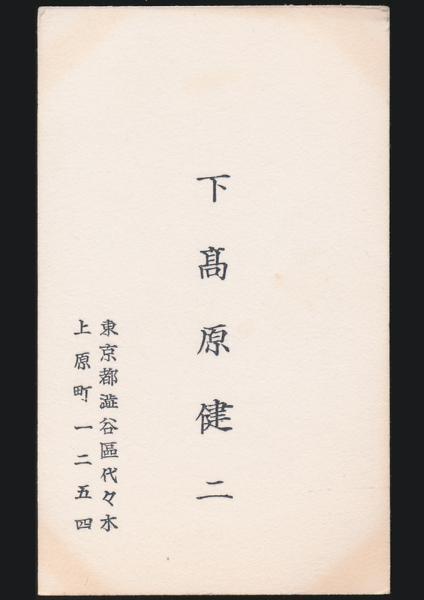 下髙原健二
東京都澁谷區代々木
上原町一二五四